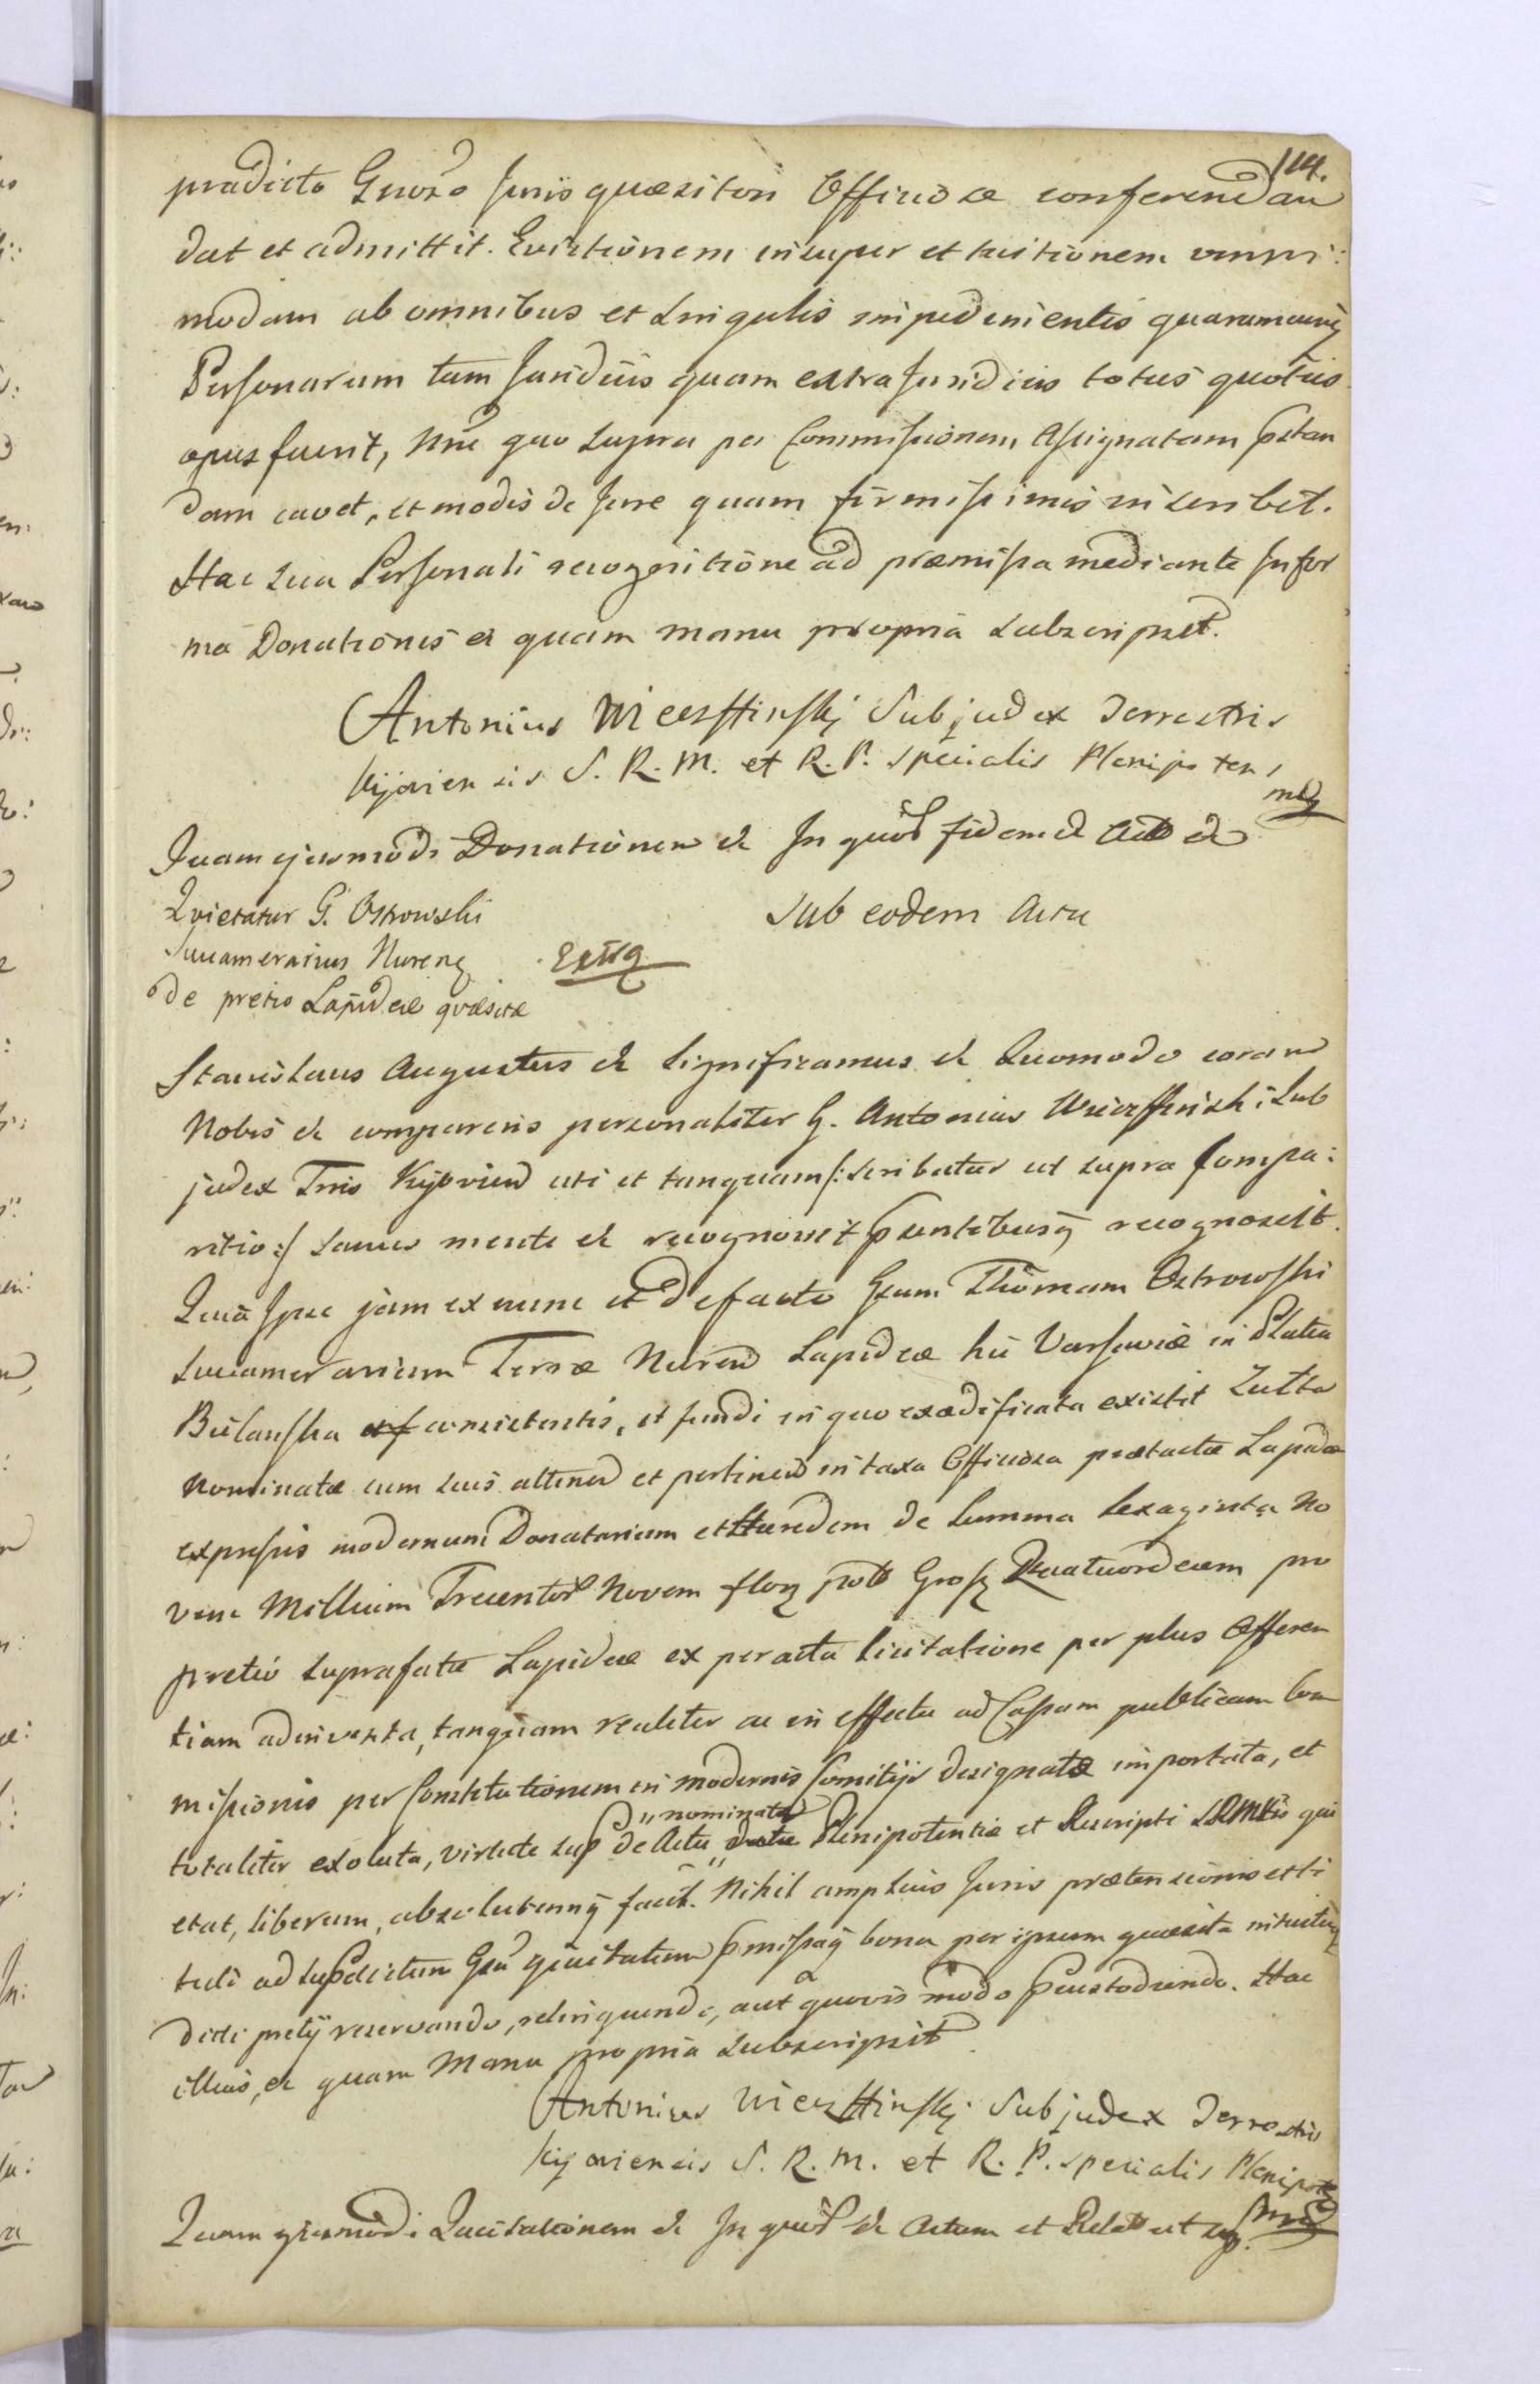 114.
prædicto Gnoso Jurisquæsitori Officiosæ conferendam
dat et admittit. Evictionem insuper et tuitionem omni:
modam ab omnibus et singulis impedimentis quarumcunq
Personarum tam Juridicis quam extrajuridicis toties quoties
opus fuerit, Nne quo supra per Commissionem Assignatam pstan
dam cavet, et modis de Jure quam firmissimis inscribit.
Hac sua Personali recognitione ad præmissa mediante In for
ma Donationis et quam manu propria subscripsit.
Antonius Wiesztinskj Subjudex Terrestris
Kijoviensis S. R. M. et R. P. specialis Plenipotens
mp
Quam ejusmodi Donationem et In quor fidem et Act et
Quietatur G. Ostrowski
Sub eodem Actu
Succamerarius Nuren
Extrq
de pretio Lapideæ quæsitæ
Stanislaus Augustus et Significamus et Quomodo coram
Nobis et comparens personaliter G. Antonius Wiesztinski Sub
judex Tris Kijovien uti et tanquam /: scribatur ut supra Compa:
ritio :/ sanus mente et recognovit pntibusq recognoscit.
Quia Ipse jam ex nunc et de facto Gsum Thomam Ostrowski
Succamerarium Terræ Nuren Lapideæ hic Varsaviæ in Platea
Bielanska consistentis, et fundi in quo exædificata existit Zutta
Nominatæ cum suis attinen et pertinen in taxa Officiosa prætactæ Lapideæ
expressis modernum Donatarium et Hæredem de Summa Sexaginta No
vem Millium Trecentor Novem flor poll Gross Quatuordecem pro
pretio suprafatæ Lapideæ ex peracta licitatione per plus Offeren
tiam adinventa, tanquam realiter ac in effectu ad Cassam publicam Com
missionis per Constitutionem in modernis Comitijs designatæ importata, et
totaliter exoluta, virtute sup de Actu "nominatæ" Plenipotentiæ et Rescripti SRMttis qui
etat, liberum, absolutumq facit. Nihil amplius Juris prætensionis et ti
tuli ad supdictum Gsu quietatum pmissaq bona per ipsum quæsita intuitu
dicti pretij reservando, relinquendo, aut quovis modo pcustodiendo. Hac
illius, et quam Manu propria subscripsit
Antonius Wiesztinskj Subjudex Terrestris
Kijoviensis S. R. M. et R. P. specialis Plenipots
mp
Quam ejusmodi Quietationem et In quor et Actum et Relat ut sup.